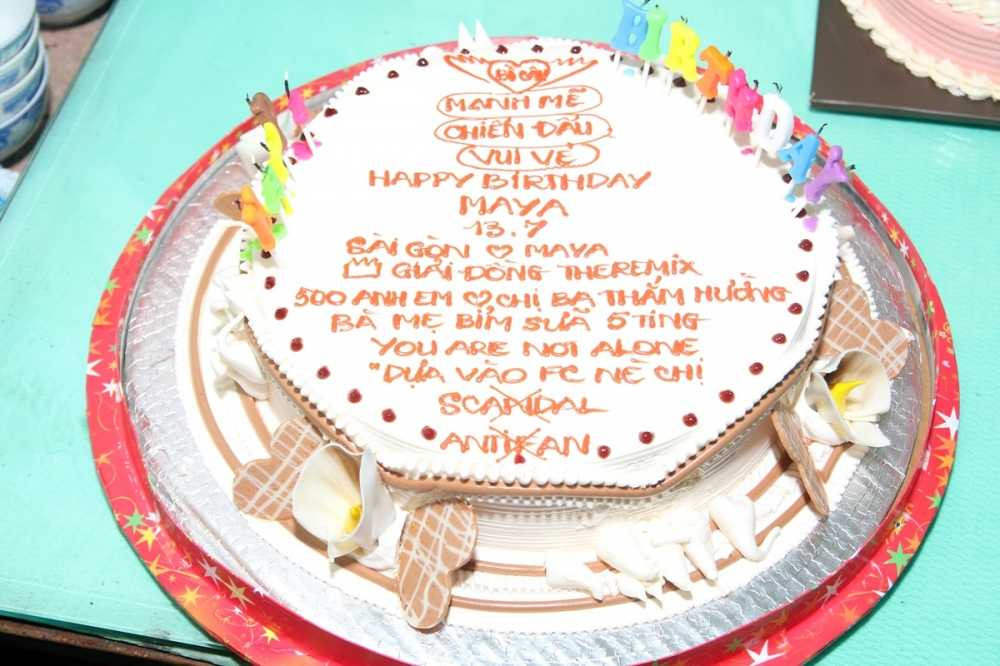 BÍ ẨN
MẠNH MẼ
CHIẾN ĐẤU
VUI VẺ
HAPPY BIRTHDAY
MAYA
13.7
SÀI GÒN ♡ MAYA
GIẢI ĐỒNG THEREMIX
500 ANH EM ♡ CHỊ BA THẮM HƯỜNG
BÀ MẸ BỈM SỮA 5 TING
YOU ARE NOT ALONE
"DỰA VÀO FC NÈ CHỊ
SCANDAL
ANTIFAN
BIRTHDAY